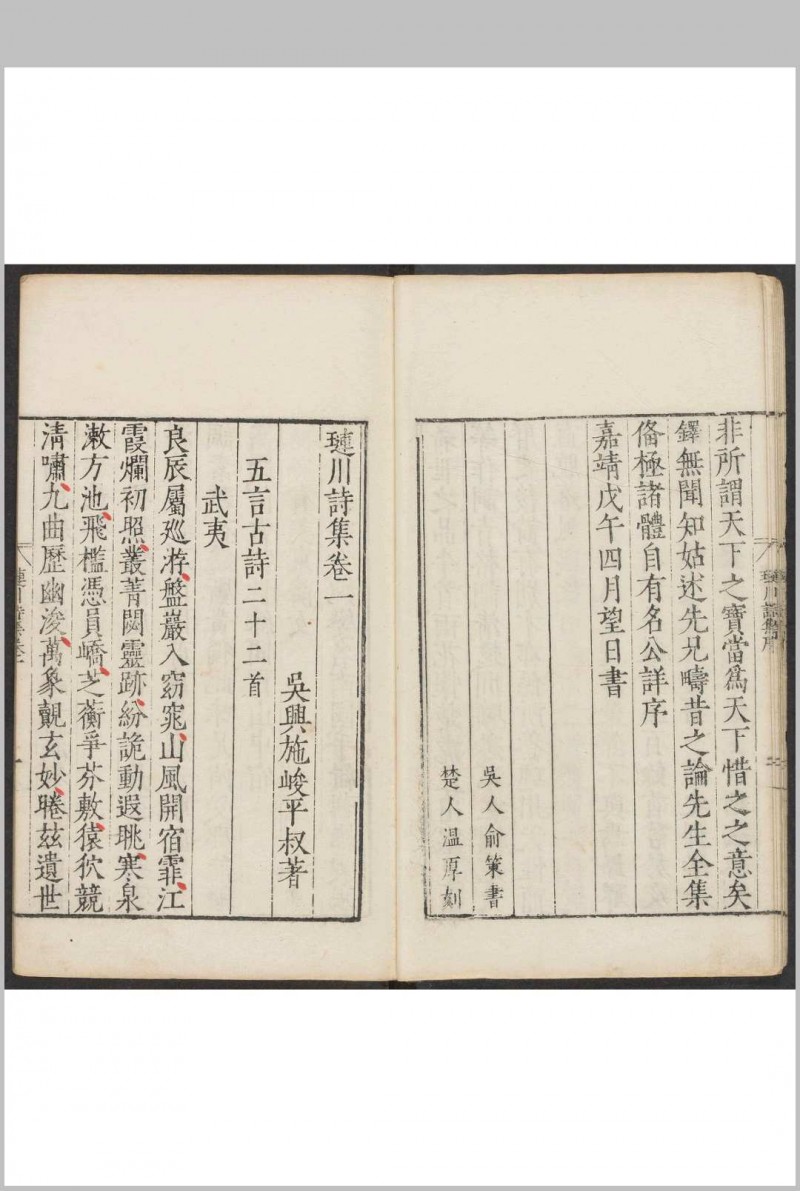 非所謂天下之寶當爲天下惜之之意矣
鐸無聞知姑述先兄疇昔之論先生全集
俻極諸體自有名公詳序
嘉靖戊午四月望日書
吳人俞策書
楚人温厚刻
璉川詩集卷一
吳興施峻平叔著
五言古詩二十二首
武夷
良辰屬巡游盤巖入窈窕山風開宿霏江
霞爛初照叢菁閟靈跡紛詭動遐眺寒泉
漱方池飛檻憑員嶠芝蘅爭芬敷猿狖競
清嘯九曲歷幽浚萬象覿玄妙睠玆遺世